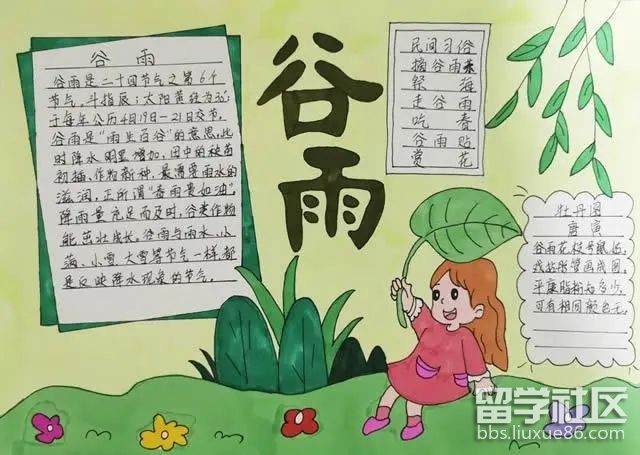 谷雨
谷雨是二十四节气之第6个
节气。斗指辰；太阳黄经为30°；
于每年公历4月19—21日交节。
谷雨是“雨生百谷”的意思,此
时降水明显增加,田中的秧苗
初插、作物新种,最需要雨水的
滋润,正所谓“春雨贵如油”。
降雨量充足而及时,谷类作物
能茁壮成长。谷雨与雨水、小
满、小雪、大雪等节气一样,都
是反映降水现象的节气。
谷雨
民间习俗
摘谷雨茶
祭海
走谷雨
吃春
谷雨贴
赏花
牡丹图
唐寅
谷雨花枝号鼠姑,
戏拈彤管画成图。
平康脂粉知多少,
可有相同颜色无。
留学社区
bbs.liuxue86.com